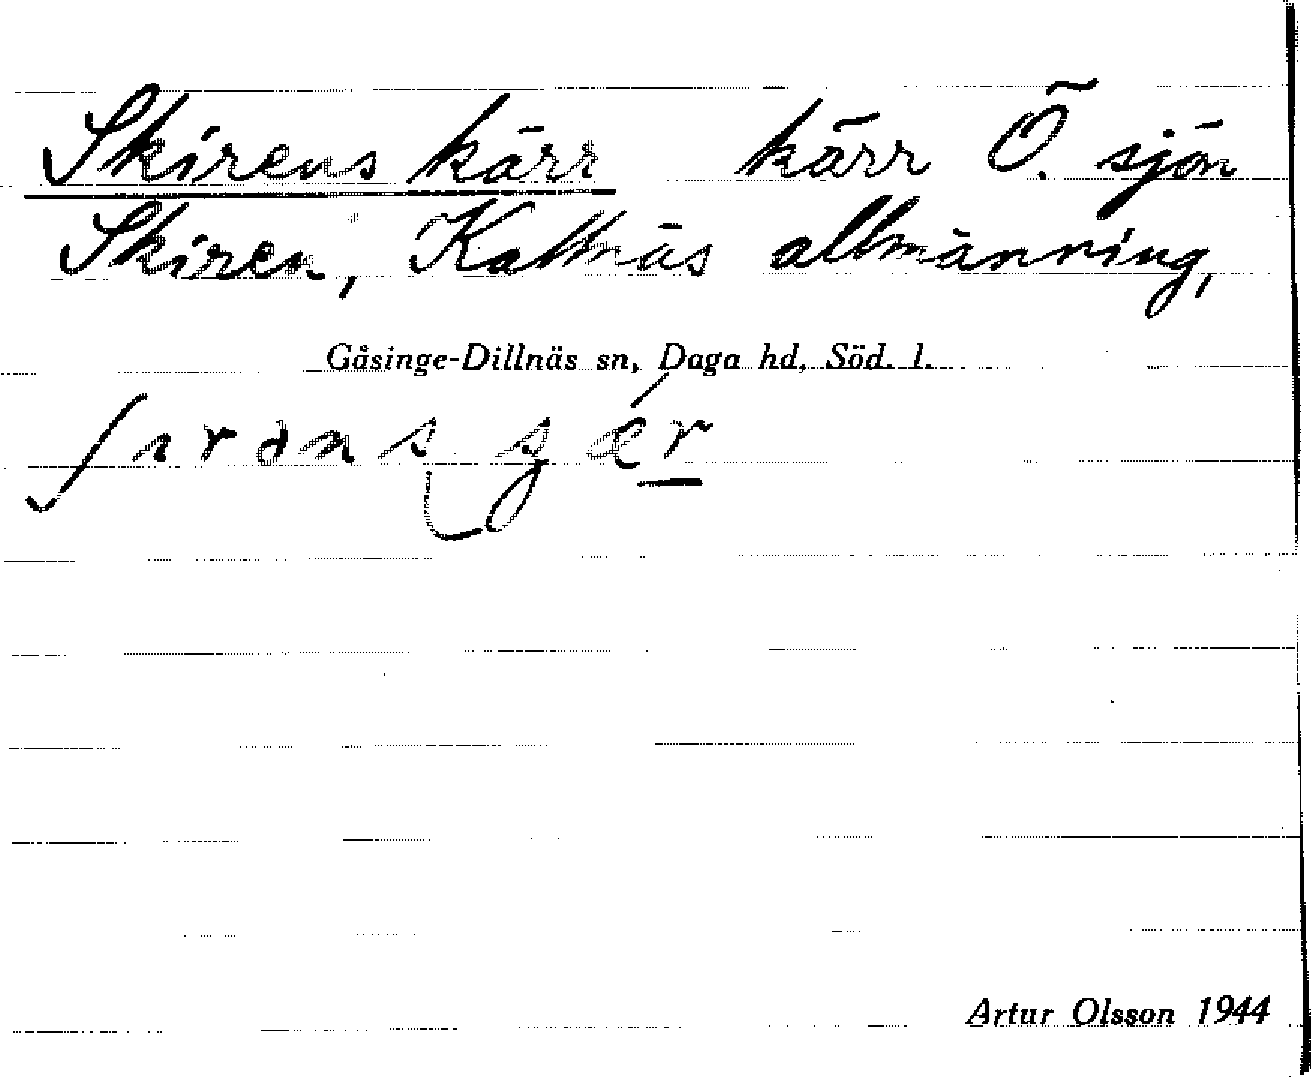 Skirens kärr kärr Ö. sjön
Skiren, Kattnäs allmänning,
Gåsinge-Dillnäs sn, Daga hd, Söd. l.
Artur Olsson 1944